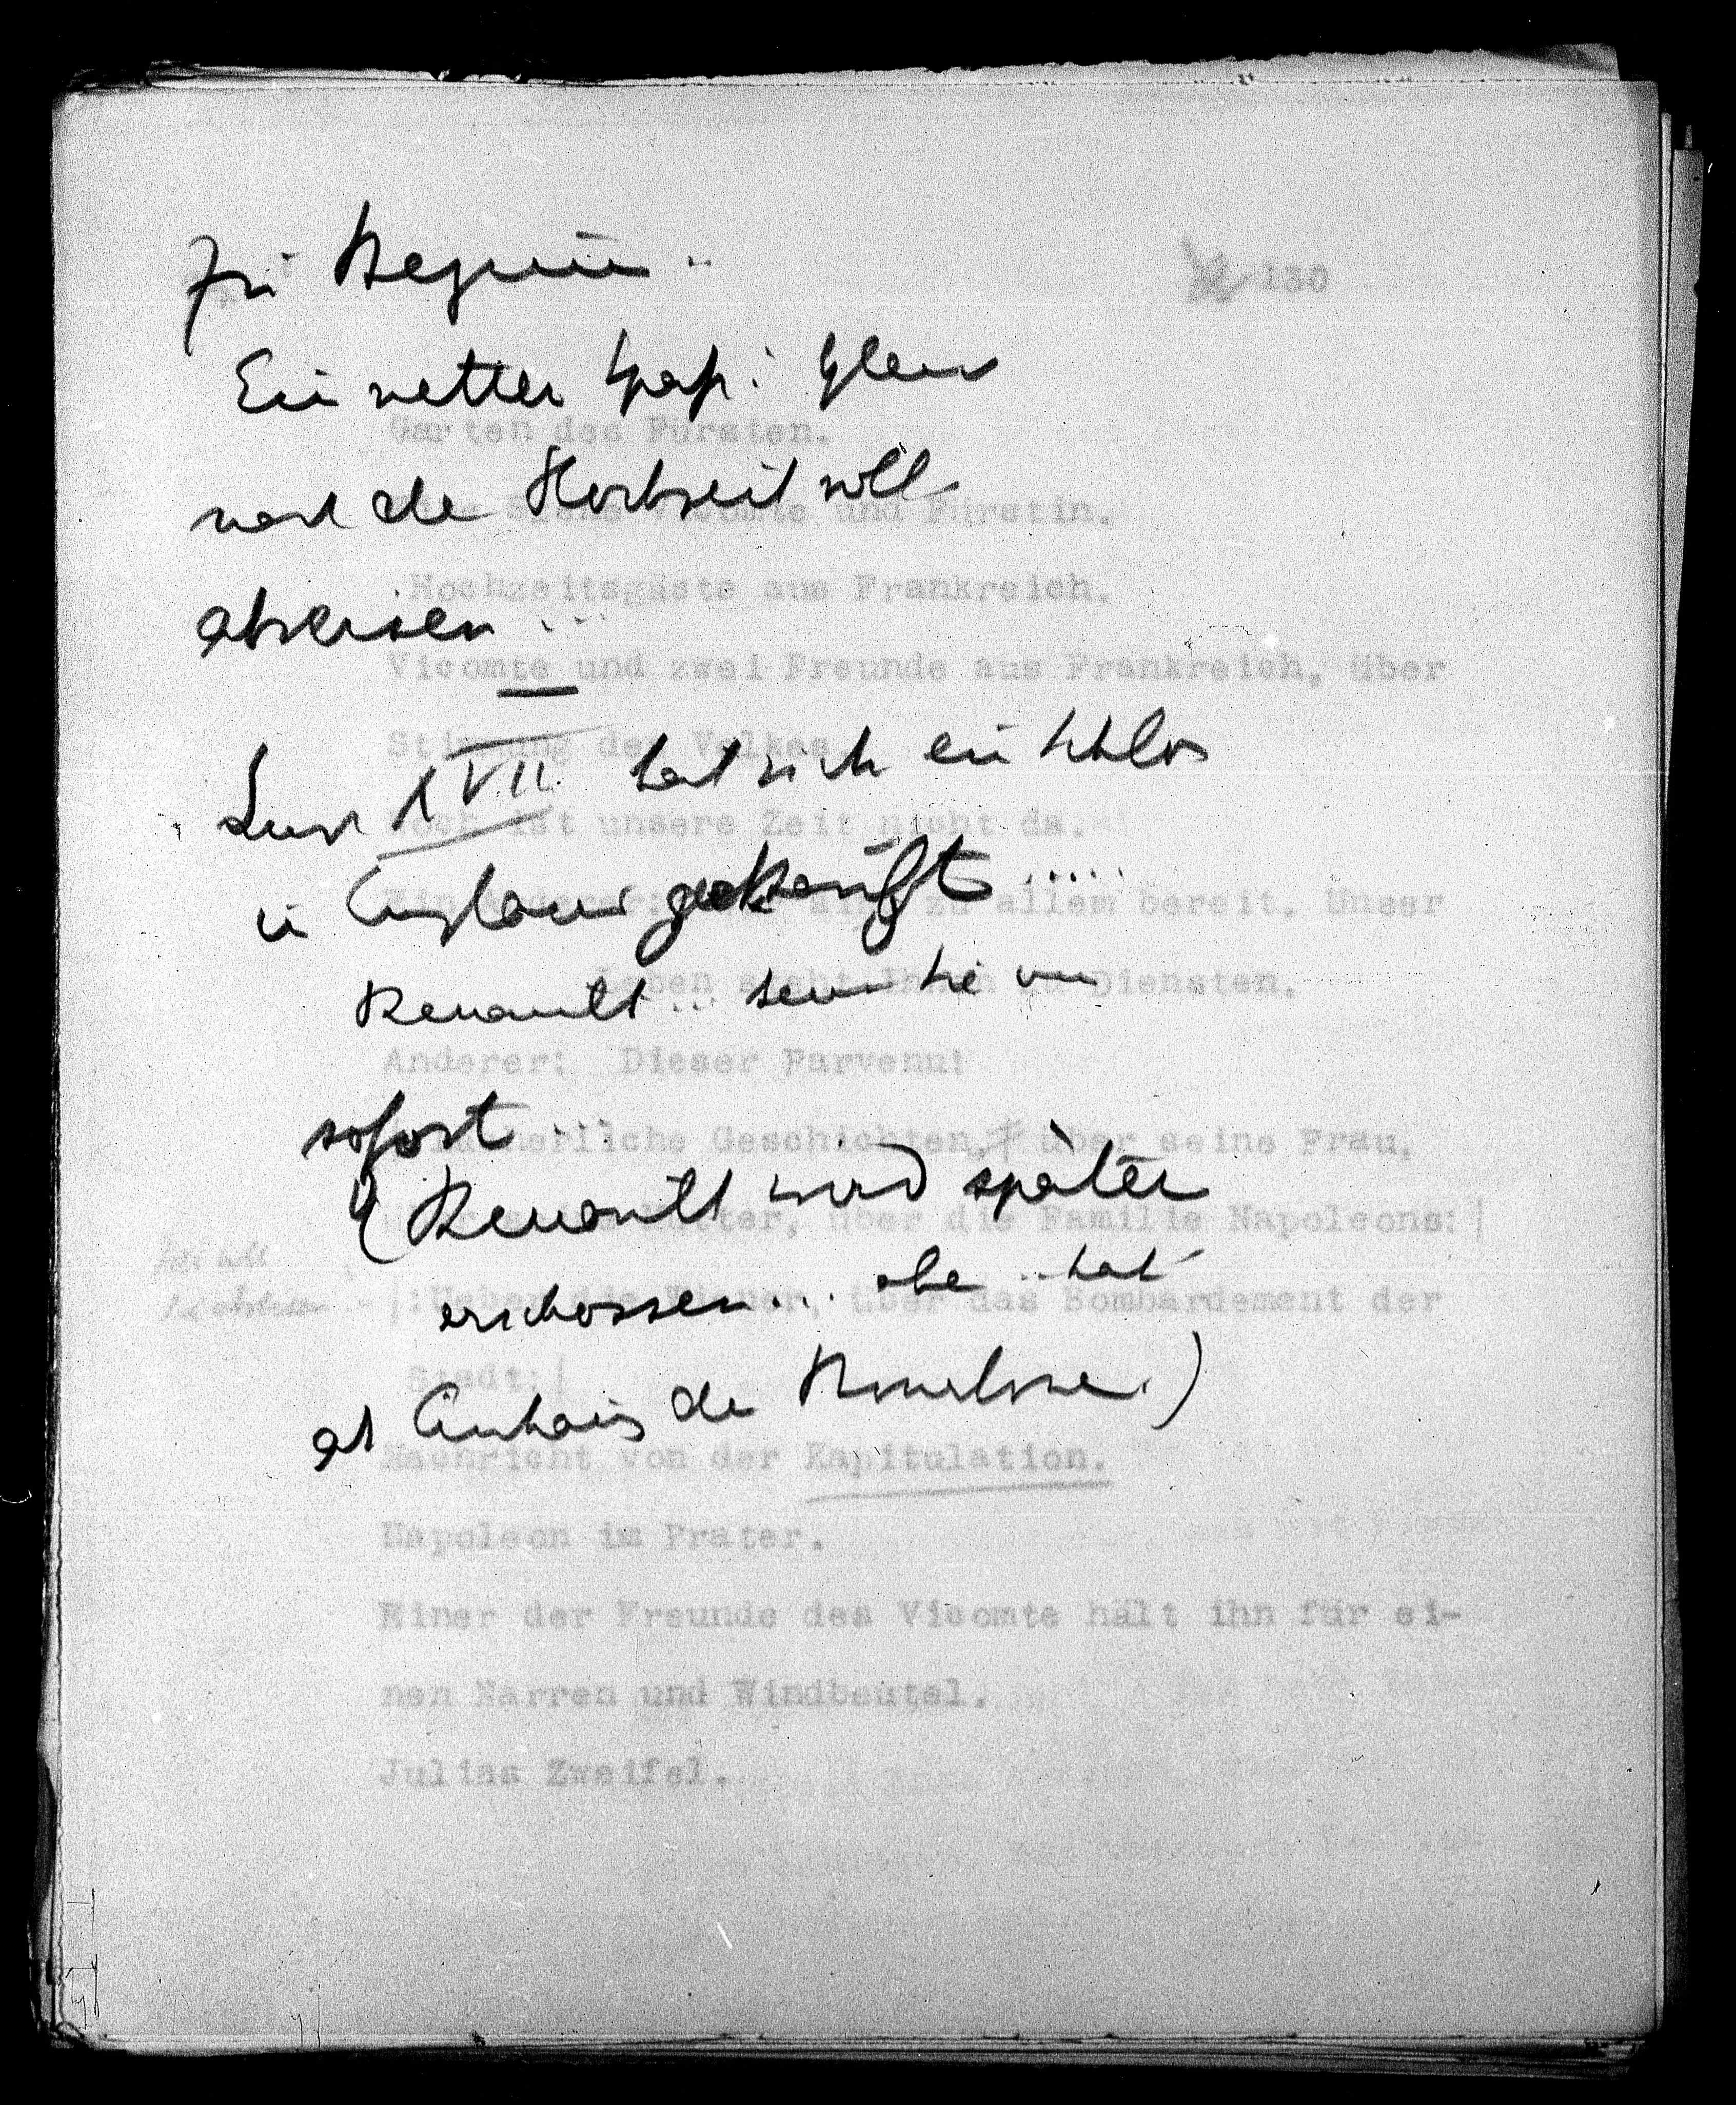 Zu Beginn..
Ein netter Spaß: Gleich
nach der Hochzeit soll
abreisen ...
Louis XVII. hat sich ein Schloss
in England gekauft .....
Renault ..
sofort ...
(Renault wird später
erschossen ... aber .. hat
als
130
Garten des Fürsten.
Vicomte und Fürstin.
Hochzeitsgäste aus Frankreich.
Vicomte und zwei Freunde aus Frankreich, über
Stimmung des Volkes.
Noch ist unsere Zeit nicht da.
Ein Anderer: zu allem bereit. Unser
Leben steht Ihnen zu Diensten.
Anderer: Dieser Parvenu!
Geschichten, über seine Frau,
über die Familie Napoleons:|
|:Ueber die Wiener, über das Bombardement der
Stadt:|
Nachricht von der Kapitulation.
Napoleon im Prater.
Einer der Freunde des Vicomte hält ihn für ei-
nen Narren und Windbeutel.
Julias Zweifel.